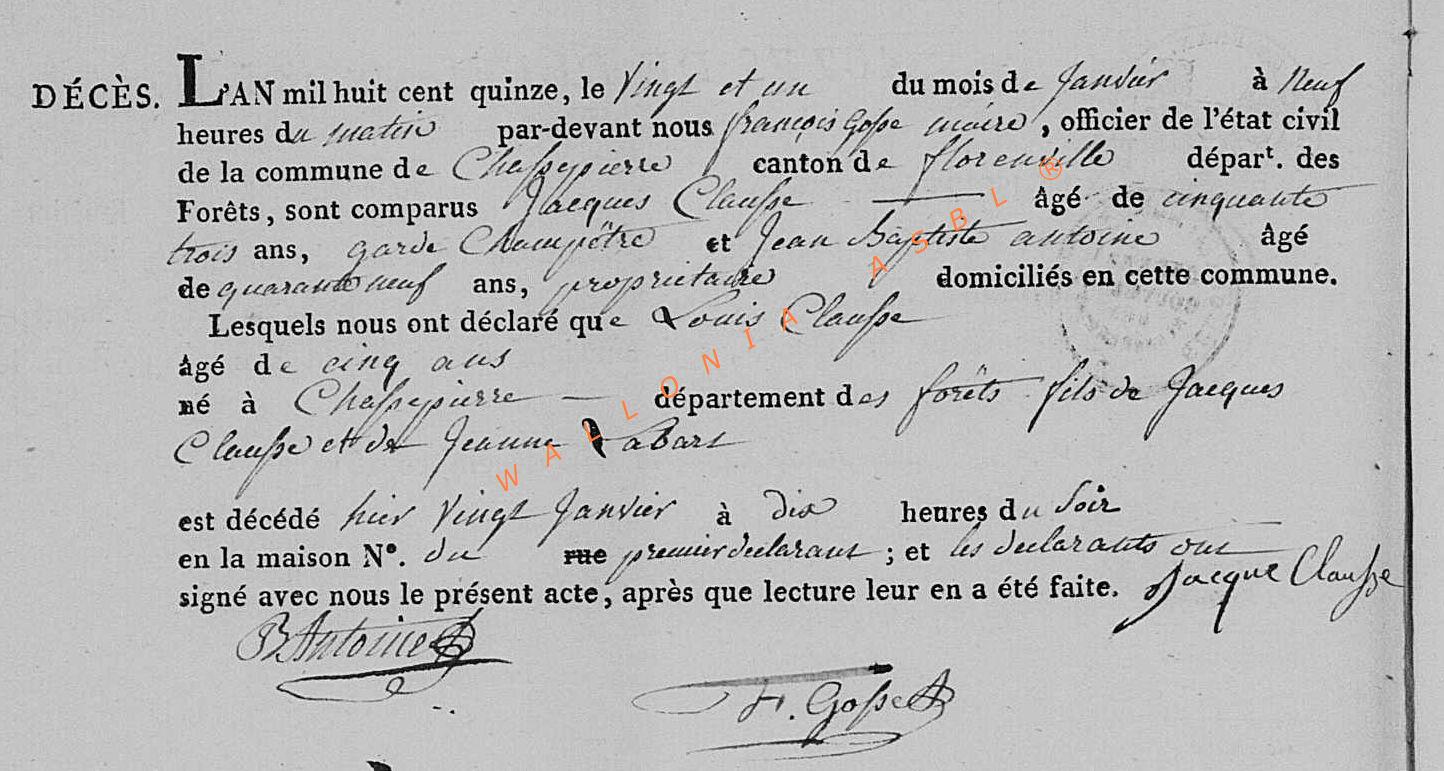 DÉCÈS. L'AN mil huit cent quinze, le Vingt et un du mois de Janvier à Neuf
heures du matin par-devant nous françois Gosse maire, officier de l'état civil
de la commune de Chassepierre canton de florenville départ. des
Forêts, sont comparus Jacques Clausse âgé de cinquante
trois ans, garde Champêtre et Jean Baptiste antoine âgé
de quarante neuf ans, propriétaire domiciliés en cette commune.
Lesquels nous ont déclaré que Louis Clausse
âgé de cinq ans
né à Chassepierre département des forêts fils de Jacques
Clausse et de Jeanne Labart
est décédé hier Vingt Janvier à dix heures du Soir
en la maison N°. du rue premier declarant ; et les declarants ont
signé avec nous le présent acte, après que lecture leur en a été faite. Jacque Clausse
JB Antoine
F. Gosse
WALLONIA ASBL ®